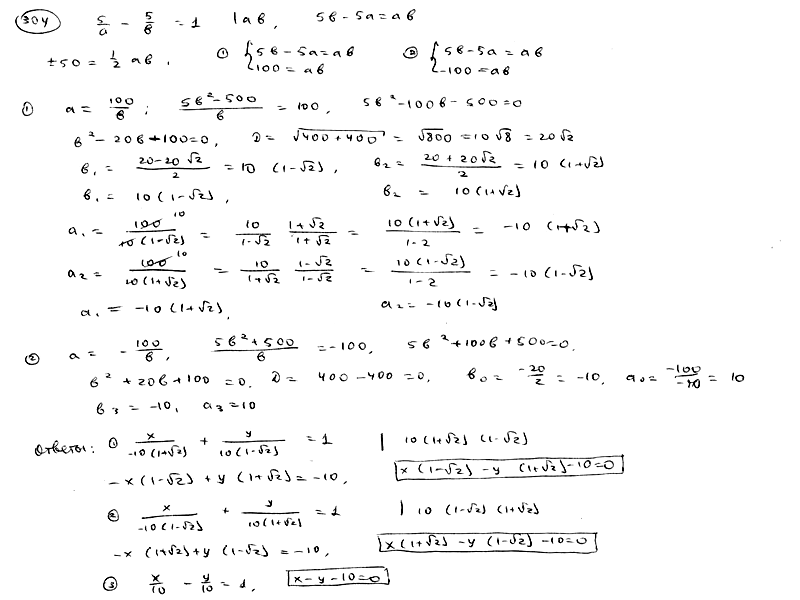 304 5/a - 5/в = 1 | aв, 5в - 5a = aв
±50 = 1/2 aв. ① { 5в - 5a = aв 100 = aв ② { 5в - 5a = aв -100 = aв
① a = 100/в; (5в² - 500)/в = 100, 5в² - 100в - 500 = 0
в² - 20в + 100 = 0, D = √(400 + 400) = √800 = 10√8 = 20√2
в₁ = (20 - 20√2)/2 = 10 (1 - √2), в₂ = (20 + 20√2)/2 = 10 (1 + √2)
в₁ = 10 (1 - √2), в₂ = 10 (1 + √2)
a₁ = 100 10/10 (1 - √2) = 10/(1 - √2) (1 + √2)/(1 + √2) = 10 (1 + √2)/(1 - 2) = -10 (1 + √2)
a₂ = 100 10/10 (1 + √2) = 10/(1 + √2) (1 - √2)/(1 - √2) = 10 (1 - √2)/(1 - 2) = -10 (1 - √2)
a₁ = -10 (1 + √2), a₂ = -10 (1 - √2)
② a = - 100/в, (5в² + 500)/в = -100, 5в² + 100в + 500 = 0.
в² + 20в + 100 = 0. D = 400 - 400 = 0, в₀ = -20/2 = -10, a₀ = -100/-10 = 10
в₃ = -10, a₃ = 10
Ответы: ① x/(-10 (1 + √2)) + y/(10 (1 - √2)) = 1 | 10 (1 + √2) (1 - √2)
-x (1 - √2) + y (1 + √2) = -10, x (1 - √2) - y (1 + √2) - 10 = 0
② x/(-10 (1 - √2)) + y/(10 (1 + √2)) = 1 | 10 (1 - √2) (1 + √2)
-x (1 + √2) + y (1 - √2) = -10, x (1 + √2) - y (1 - √2) - 10 = 0
③ x/10 - y/10 = 1, x - y - 10 = 0